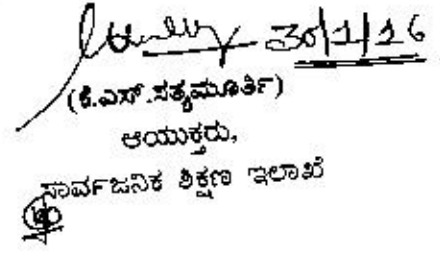 30/1/16
(ಕೆ.ಎಸ್.ಸತ್ಯಮೂರ್ತಿ)
ಆಯುಕ್ತರು,
ಸಾರ್ವಜನಿಕ ಶಿಕ್ಷಣ ಇಲಾಖೆ